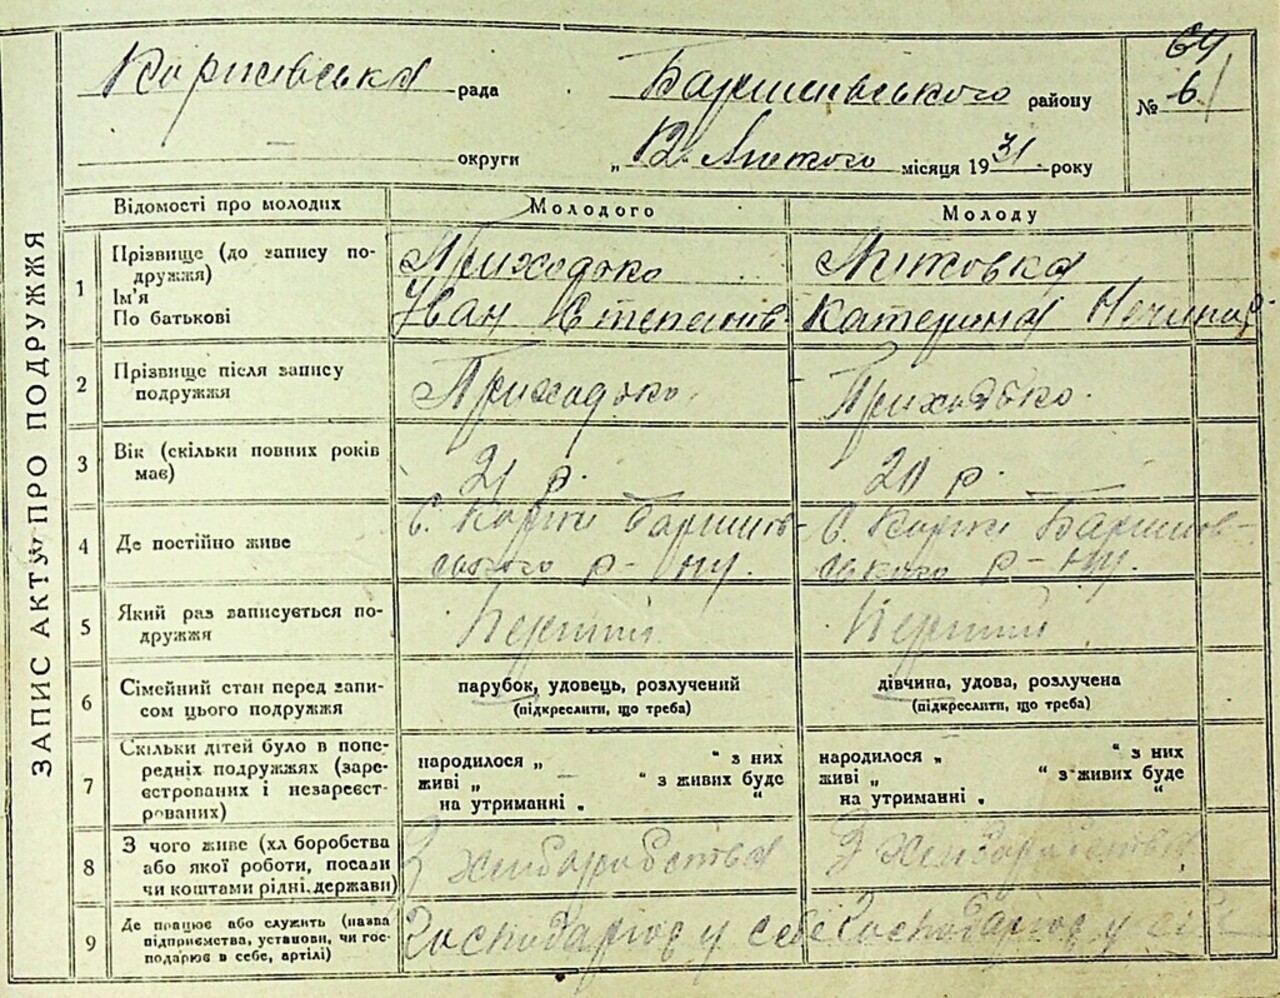 64
Коржівська рада Баришівського району № 6
округи „12" Лютого місяця 1931 року
ЗАПИС АКТУ ПРО ПОДРУЖЖЯ
Відомості про молодих Молодого Молоду
1 Прізвище (до запису по-
дружжя) Приходько Литовка
Ім'я
По батькові Іван Степанов Катерина
2 Прізвище після запису
подружжя Приходько Приходько
3 Вік (скільки повних років
має) 21 р. 20 р.
4 Де постійно живе с. Коржі Баришів- с. Коржі Баришів-
ського р-ну. ського р-ну.
5 Який раз записується по-
дружжя Перший Перший
6 Сімейний стан перед запи-
сом цього подружжя
парубок, удовець, розлучений дівчина, удова, розлучена
(підкреслити, що треба) (підкреслити, що треба)
7 Скільки дітей було в попе-
редніх подружжях (заре-
єстрованих і незареєст-
рованих)
народилося „ “ з них народилося „ “ з них
живі „ “ з живих буде живі „ “ з живих буде
на утриманні „ “ на утриманні „ “
8 З чого живе (хліборобства
або якої роботи, посади
чи коштами рідні, держави) З хліборобства З хліборобства
9 Де працює або служить (назва
підприємства, установи, чи гос-
подарює в себе, артілі) Господарює у себе Господарює у себе